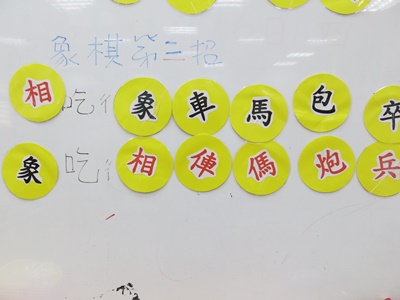 象棋第三招
相吃 象車馬包卒
象吃 相俥傌炮兵